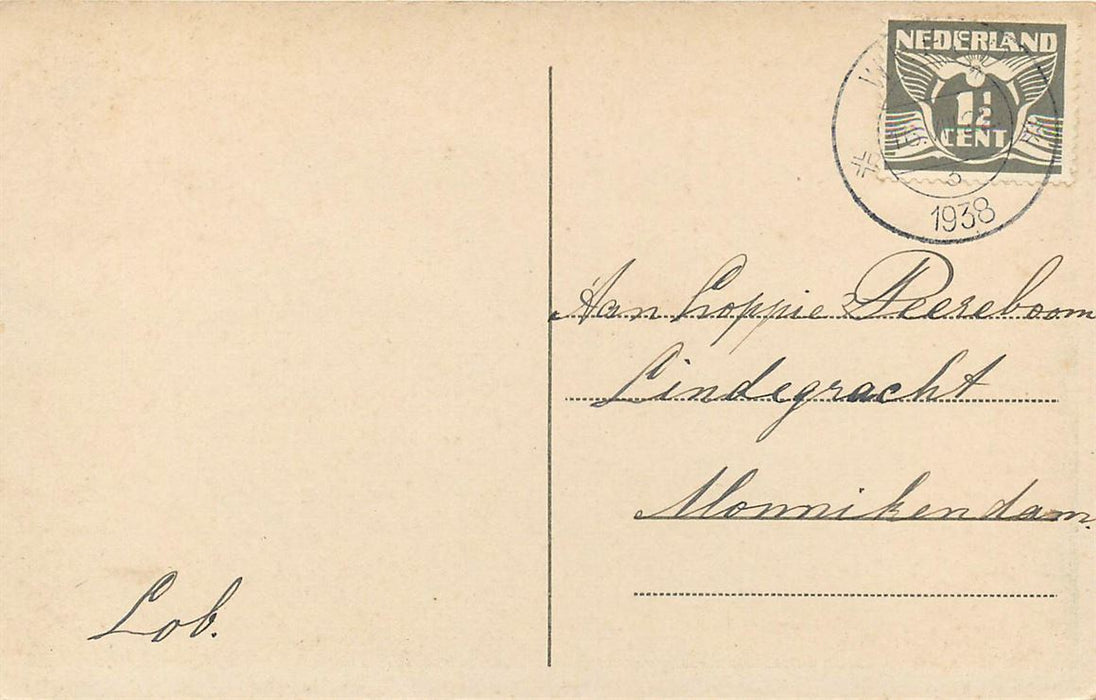 NEDERLAND
1½
CENT
5
1938
Aan Coppie Peereboom
Lindegracht
Monnikendam.
Lob.